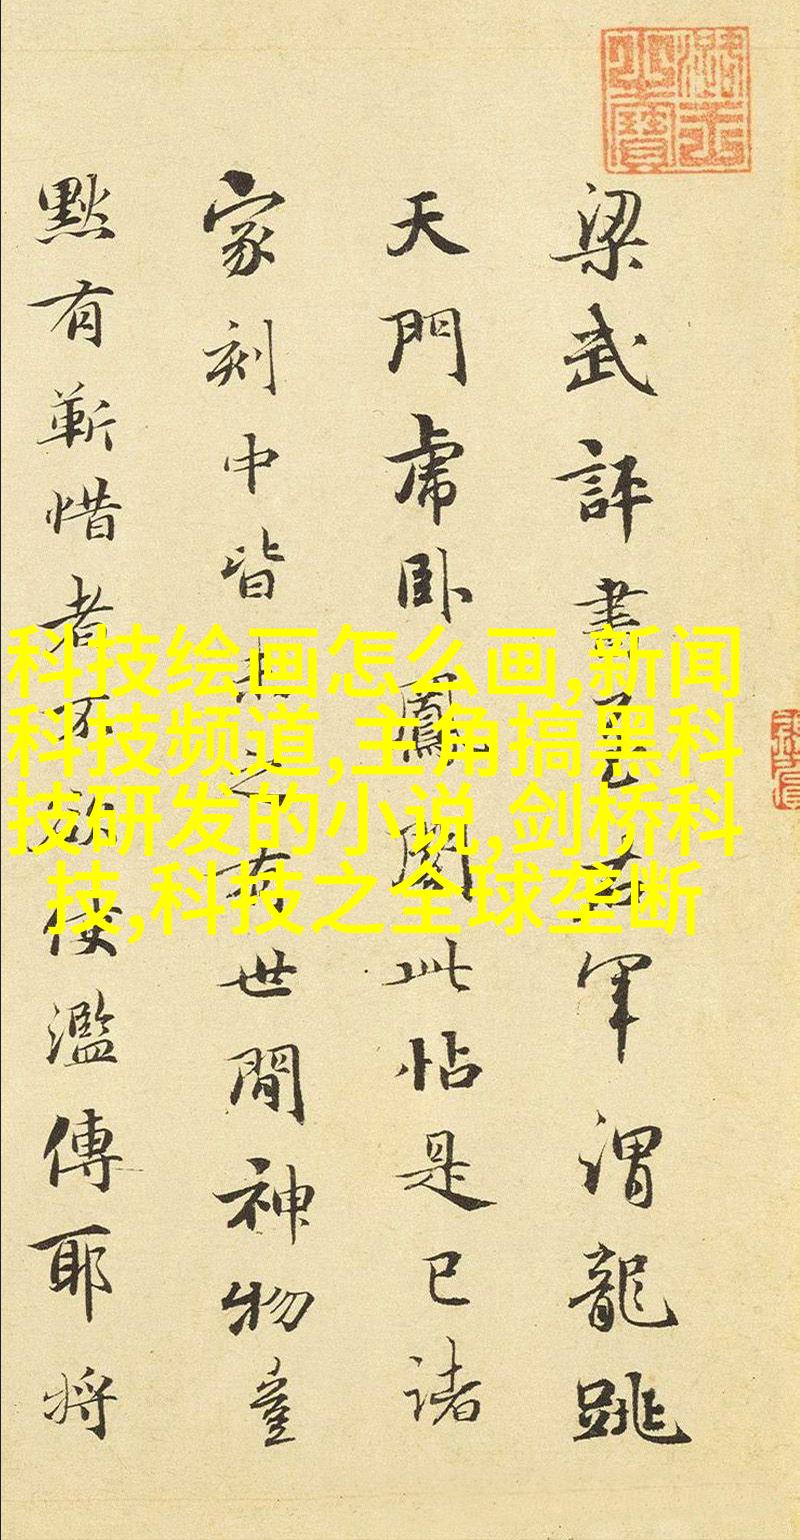 梁武評書至右軍謂龍跳
天門虎卧鳳閣此帖是已諸
家刻中皆未之有世間神物豈
默有靳惜者不欲使濫傳耶將
科技绘画怎么画,新闻
科技频道,主角搞黑科
技研发的小说,剑桥科
技,科技之全球垄断